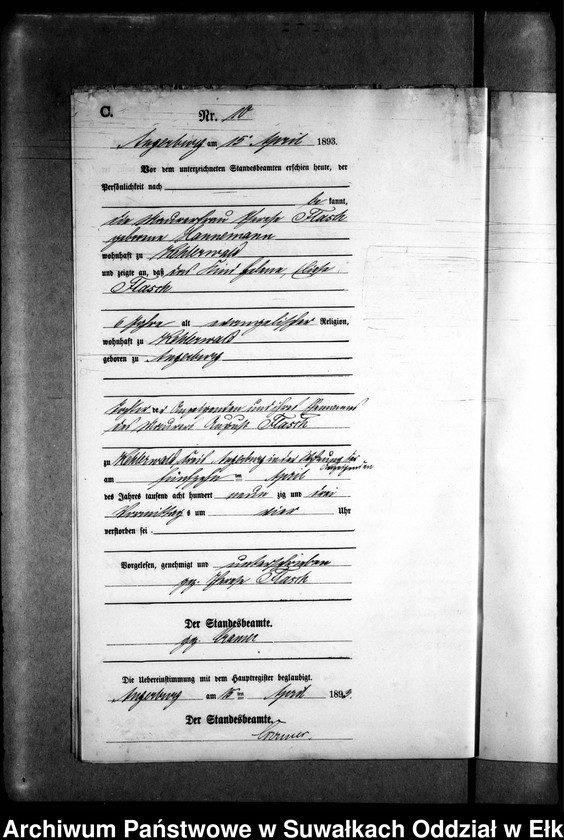 C.
Nr. 10
Angerburg am 15ten April 1893.
Vor dem unterzeichneten Standesbeamten erschien heute, der
Persönlichkeit nach
be kannt,
die Maurerfrau Therese Flasch
geborene Hannemann
wohnhaft zu Kehlerwald
und zeigte an, daß das Kind Helene, Eliese
Flasch
6 Jahre alt evangelischer Religion,
wohnhaft zu Kehlerwald
geboren zu Angerburg
Tochter der Anzeigenden und ihres Ehemannes
des Maurers August Flasch
zu Kehlerwald, Kreis Angerburg in der Wohnung der
Anzeigenden
am fünfzehnten April
des Jahres tausend acht hundert neun zig und drei
Vormittag s um vier Uhr
verstorben sei.
Vorgelesen, genehmigt und unterschrieben
gez. Therese Flasch
Der Standesbeamte.
gez. Cramer
Die Uebereinstimmung mit dem Hauptregister beglaubigt.
Angerburg am 15ten April 1893.
Der Standesbeamte.
Cramer.
Archiwum Państwowe w Suwałkach Oddział w Ełk